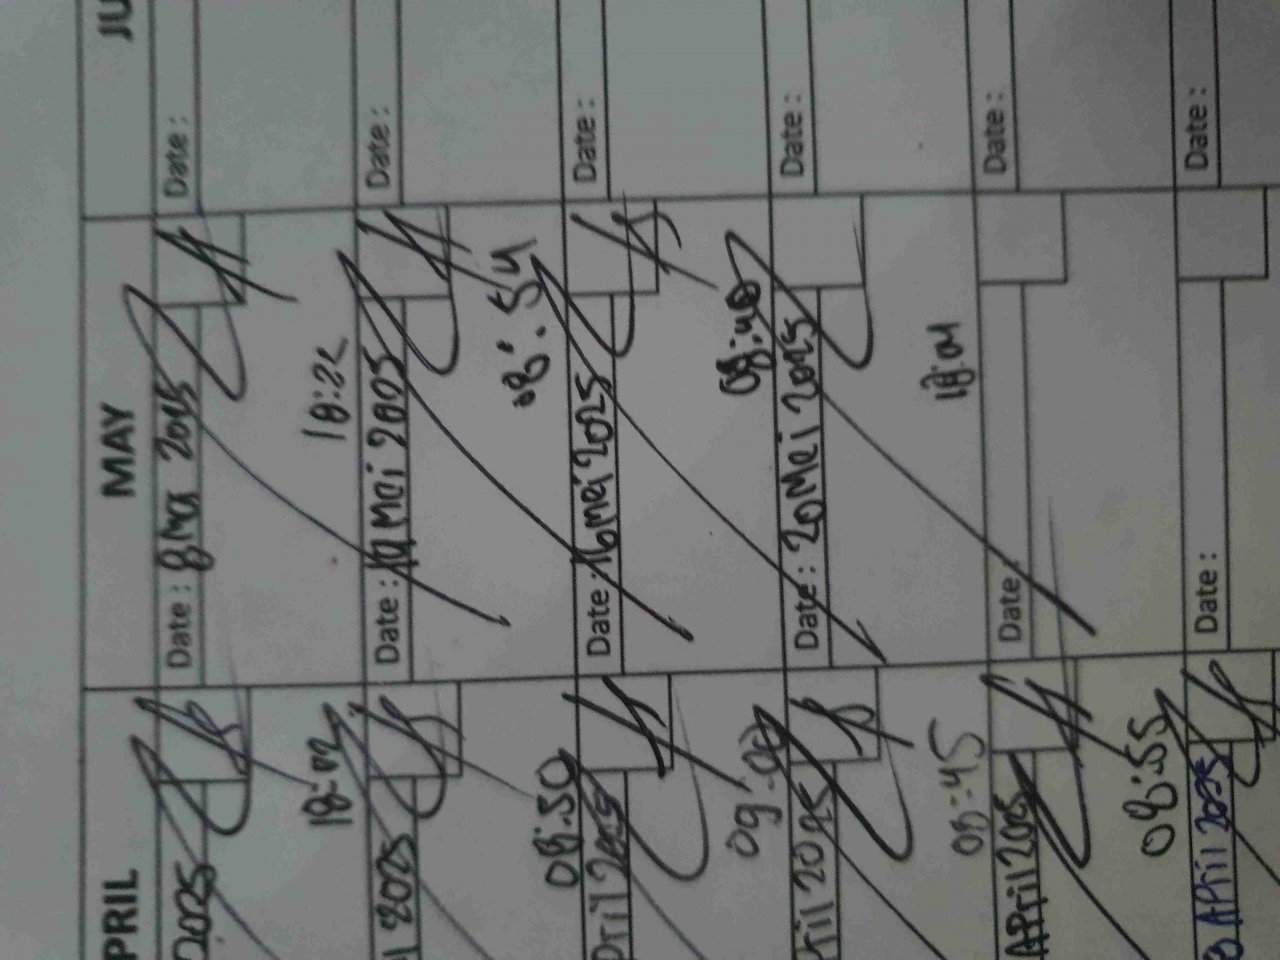 PRIL
2025
18:02
2025
08:50
pril 2025
09:00
pril 2025
08:45
APril 2025
08:55
APril 2025
MAY
Date : 8 Mei 2025
18:22
Date : 14 Mei 2025
08:54
Date : 16 mei 2025
08:40
Date : 20 Mei 2025
18:04
Date
Date :
JU
Date :
Date :
Date :
Date :
Date :
Date :